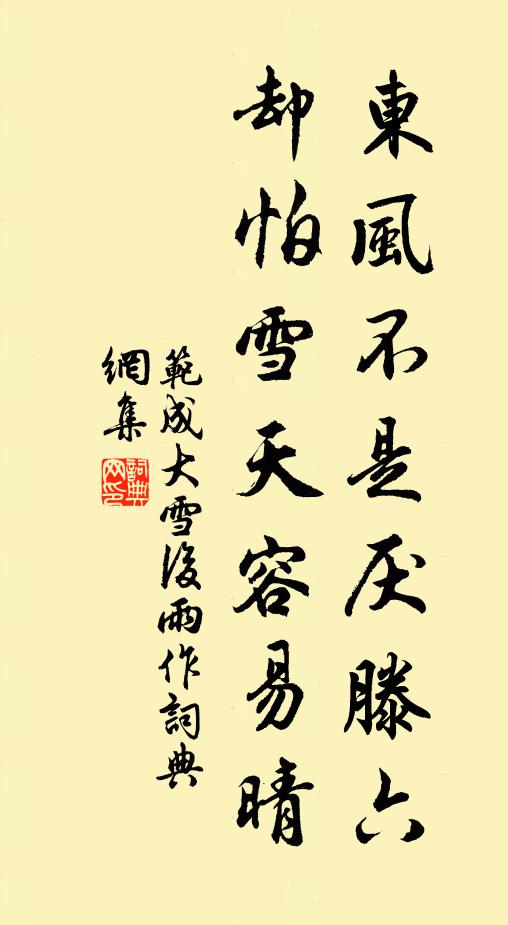 東風不是厌滕六
却怕雪天容易晴
範成大雪後雨作詞典
網集
詞典
网印